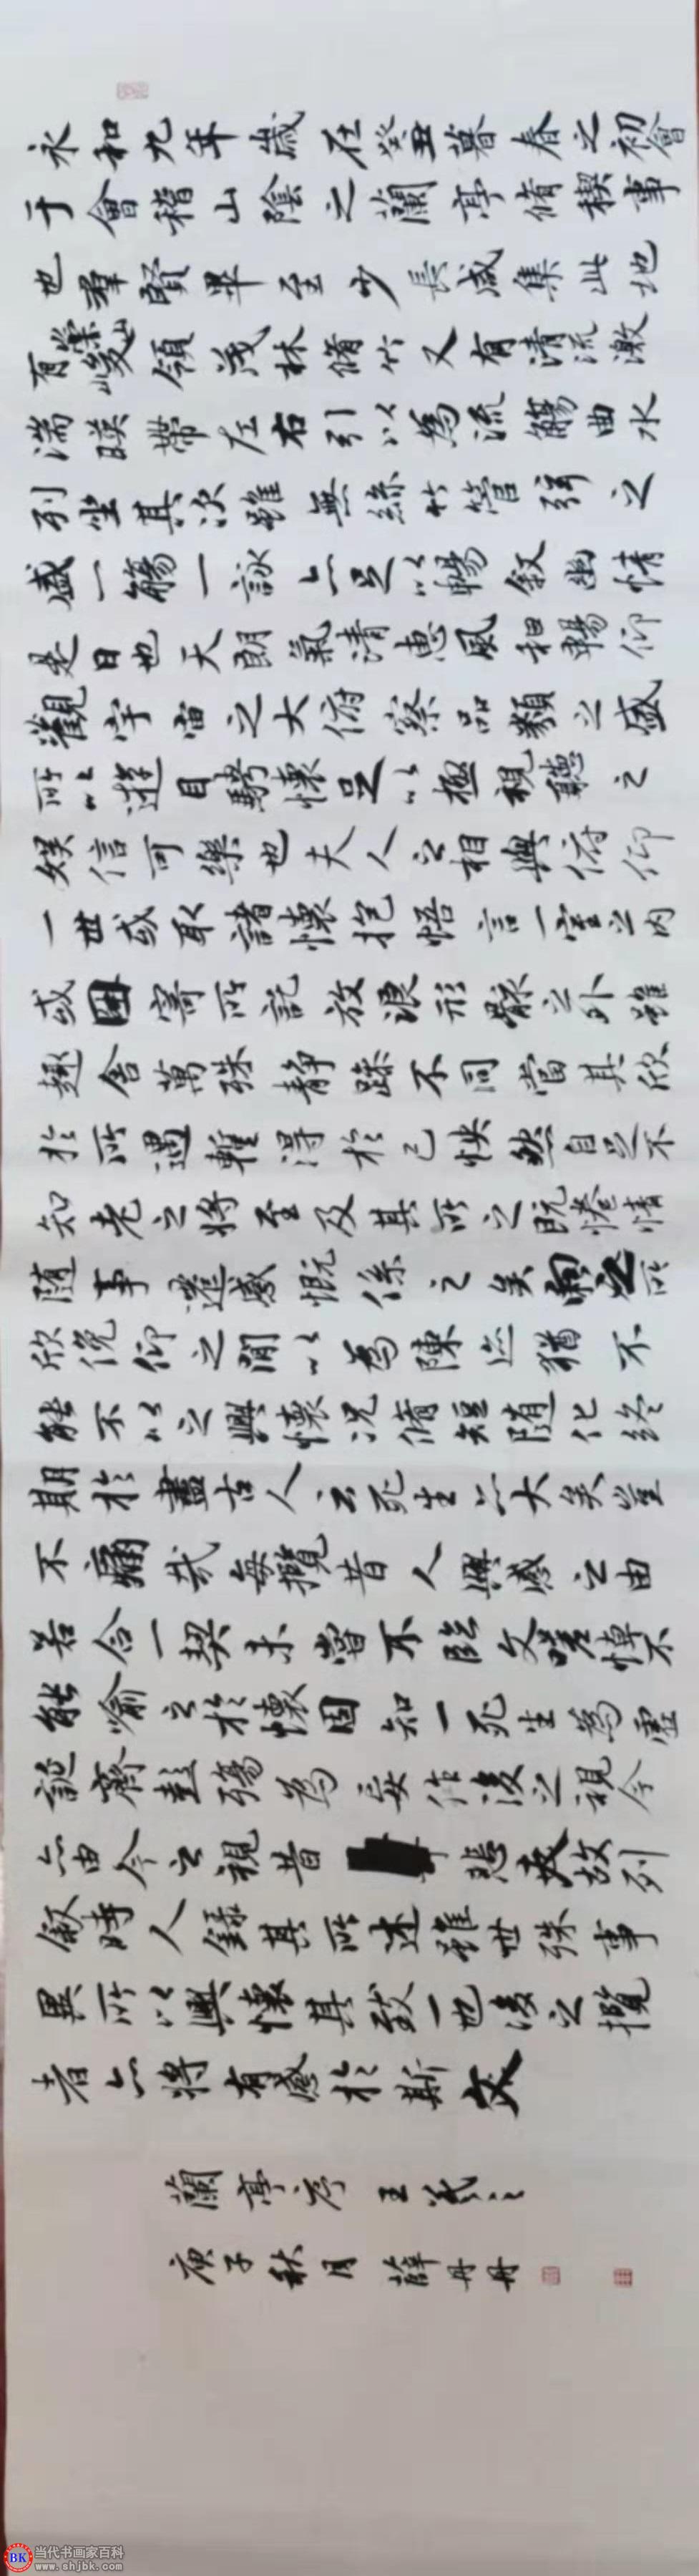 永和九年歲在癸丑暮春之初會
于會稽山陰之蘭亭脩稧事
也羣賢畢至少長咸集此地
有崇山峻領茂林脩竹又有清流激
湍暎帶左右引以為流觴曲水
列坐其次雖無絲竹管弦之
盛一觴一詠亦足以暢敘幽情
是日也天朗氣清惠風和暢仰
觀宇宙之大俯察品類之盛
所以遊目騁懷足以極視聽之
娛信可樂也夫人之相與俯仰
一世或取諸懷抱悟言一室之內
或因寄所託放浪形骸之外雖
趣舍萬殊靜躁不同當其欣
於所遇暫得於己怏然自足不
知老之將至及其所之既惓情
隨事遷感慨係之矣向之所
欣俛仰之間以為陳迹猶不
能不以之興懷況脩短隨化終
期於盡古人云死生亦大矣豈
不痛哉每攬昔人興感之由
若合一契未嘗不臨文嗟悼不
能喻之於懷固知一死生為虛
誕齊彭殤為妄作後之視今
亦由今之視昔 悲夫故列
敘時人錄其所述雖世殊事
異所以興懷其致一也後之攬
者亦將有感於斯文
蘭亭序 王羲之
庚子秋月 薛丹丹
BK 当代书画家百科
www.shjbk.com